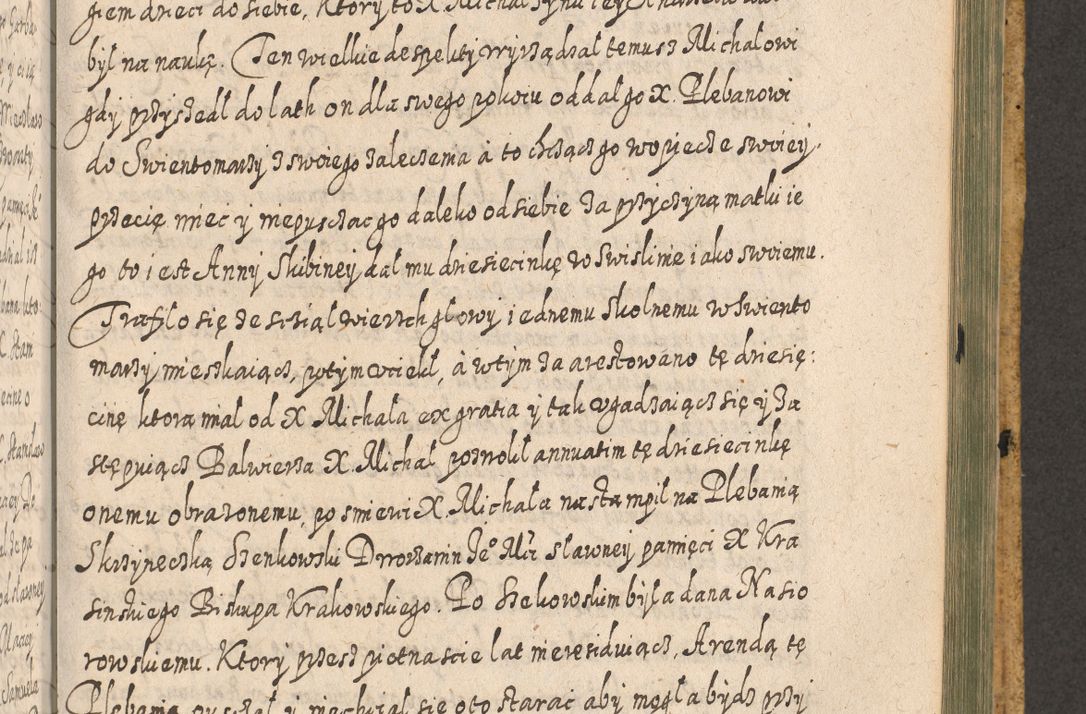 giem dzieci do siebie, Ktory to X Michał synu iey
był na naukę. Ten wielkie despekty wyrządzał temusz Michałowi
gdy przyszedł do lath on dla swego pokoiu oddał go X. Plebanowi
do Swientomarzy z swoiego zaleczenia à to chcącz go w oyjecze swoiey.
przecię miec y niepusczac go daleko od siebie za przyczyną matki ie
go to iest Anny Skibiney dał mu dziesiecinkę w Swislinie iako swoiemu.
Trafiło się ze sciął wierzch głowy iednemu Skolnemu w Swiento
marzy mieszkaiącz, potym uciekł, à wtym zaarestowano tę dziesię:
cinę ktora miał od X Michała ex gratia y tak ugadzaiącz się y za
stępuiącz Balwierza X. Michał pozwolił annuatim tę dziesiecinkę
onemu obrazonemu, po smierci X. Michała nastąmpił na Plebanią
Skrzyneczką Szenkowski Dworzanin Je° Mci sławney pamięci X Kra
sinskiego Biskupa Krakowskiego. Po Szekowskim była dana Nasio
rowskiemu. Ktory przesz pietnascie lat nieresiduiącz, Arendą tę
Plebanią pusczał y machiał się oto starac aby mogła bydz przy